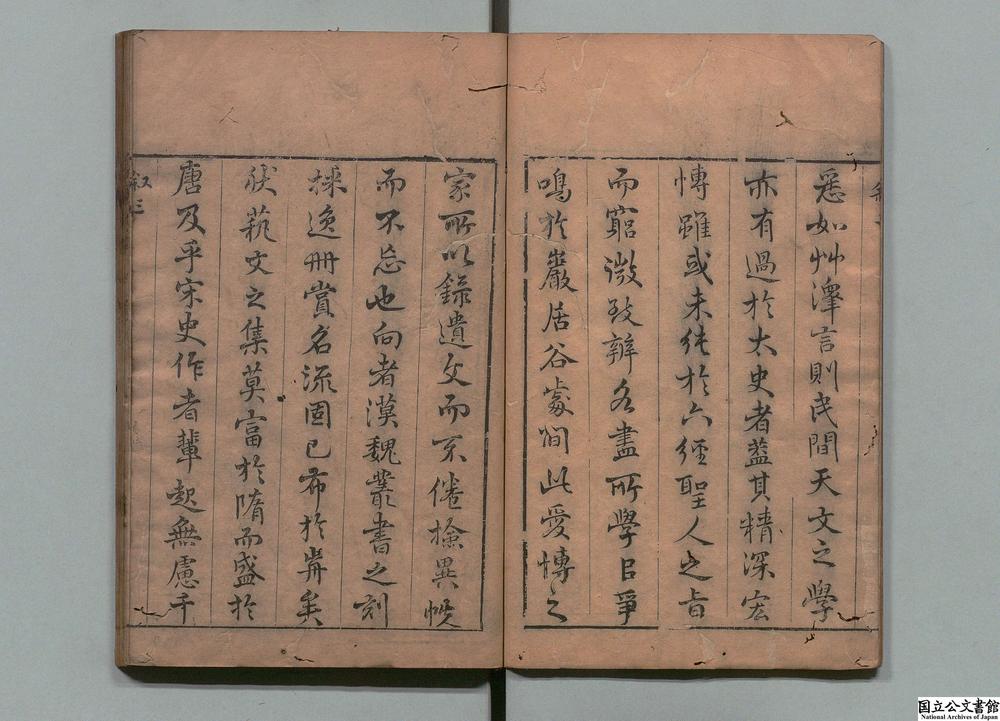 悉如艸澤言則民間天文之學
亦有過於太史者葢其精深宏
博雖或未純於六經聖人之旨
而窮微致辨各盡所學㠯爭
鳴於巖居谷處間此愛博之
家所以錄遺文而不倦撿異帙
而不忘也向者漢魏叢書之刻
採逸冊賞名流固已布於
矣
然藝文之集莫富於隋而盛於
唐及乎宋史作者輩起無慮千
叙三
国立公文書館
National Archives of Japan